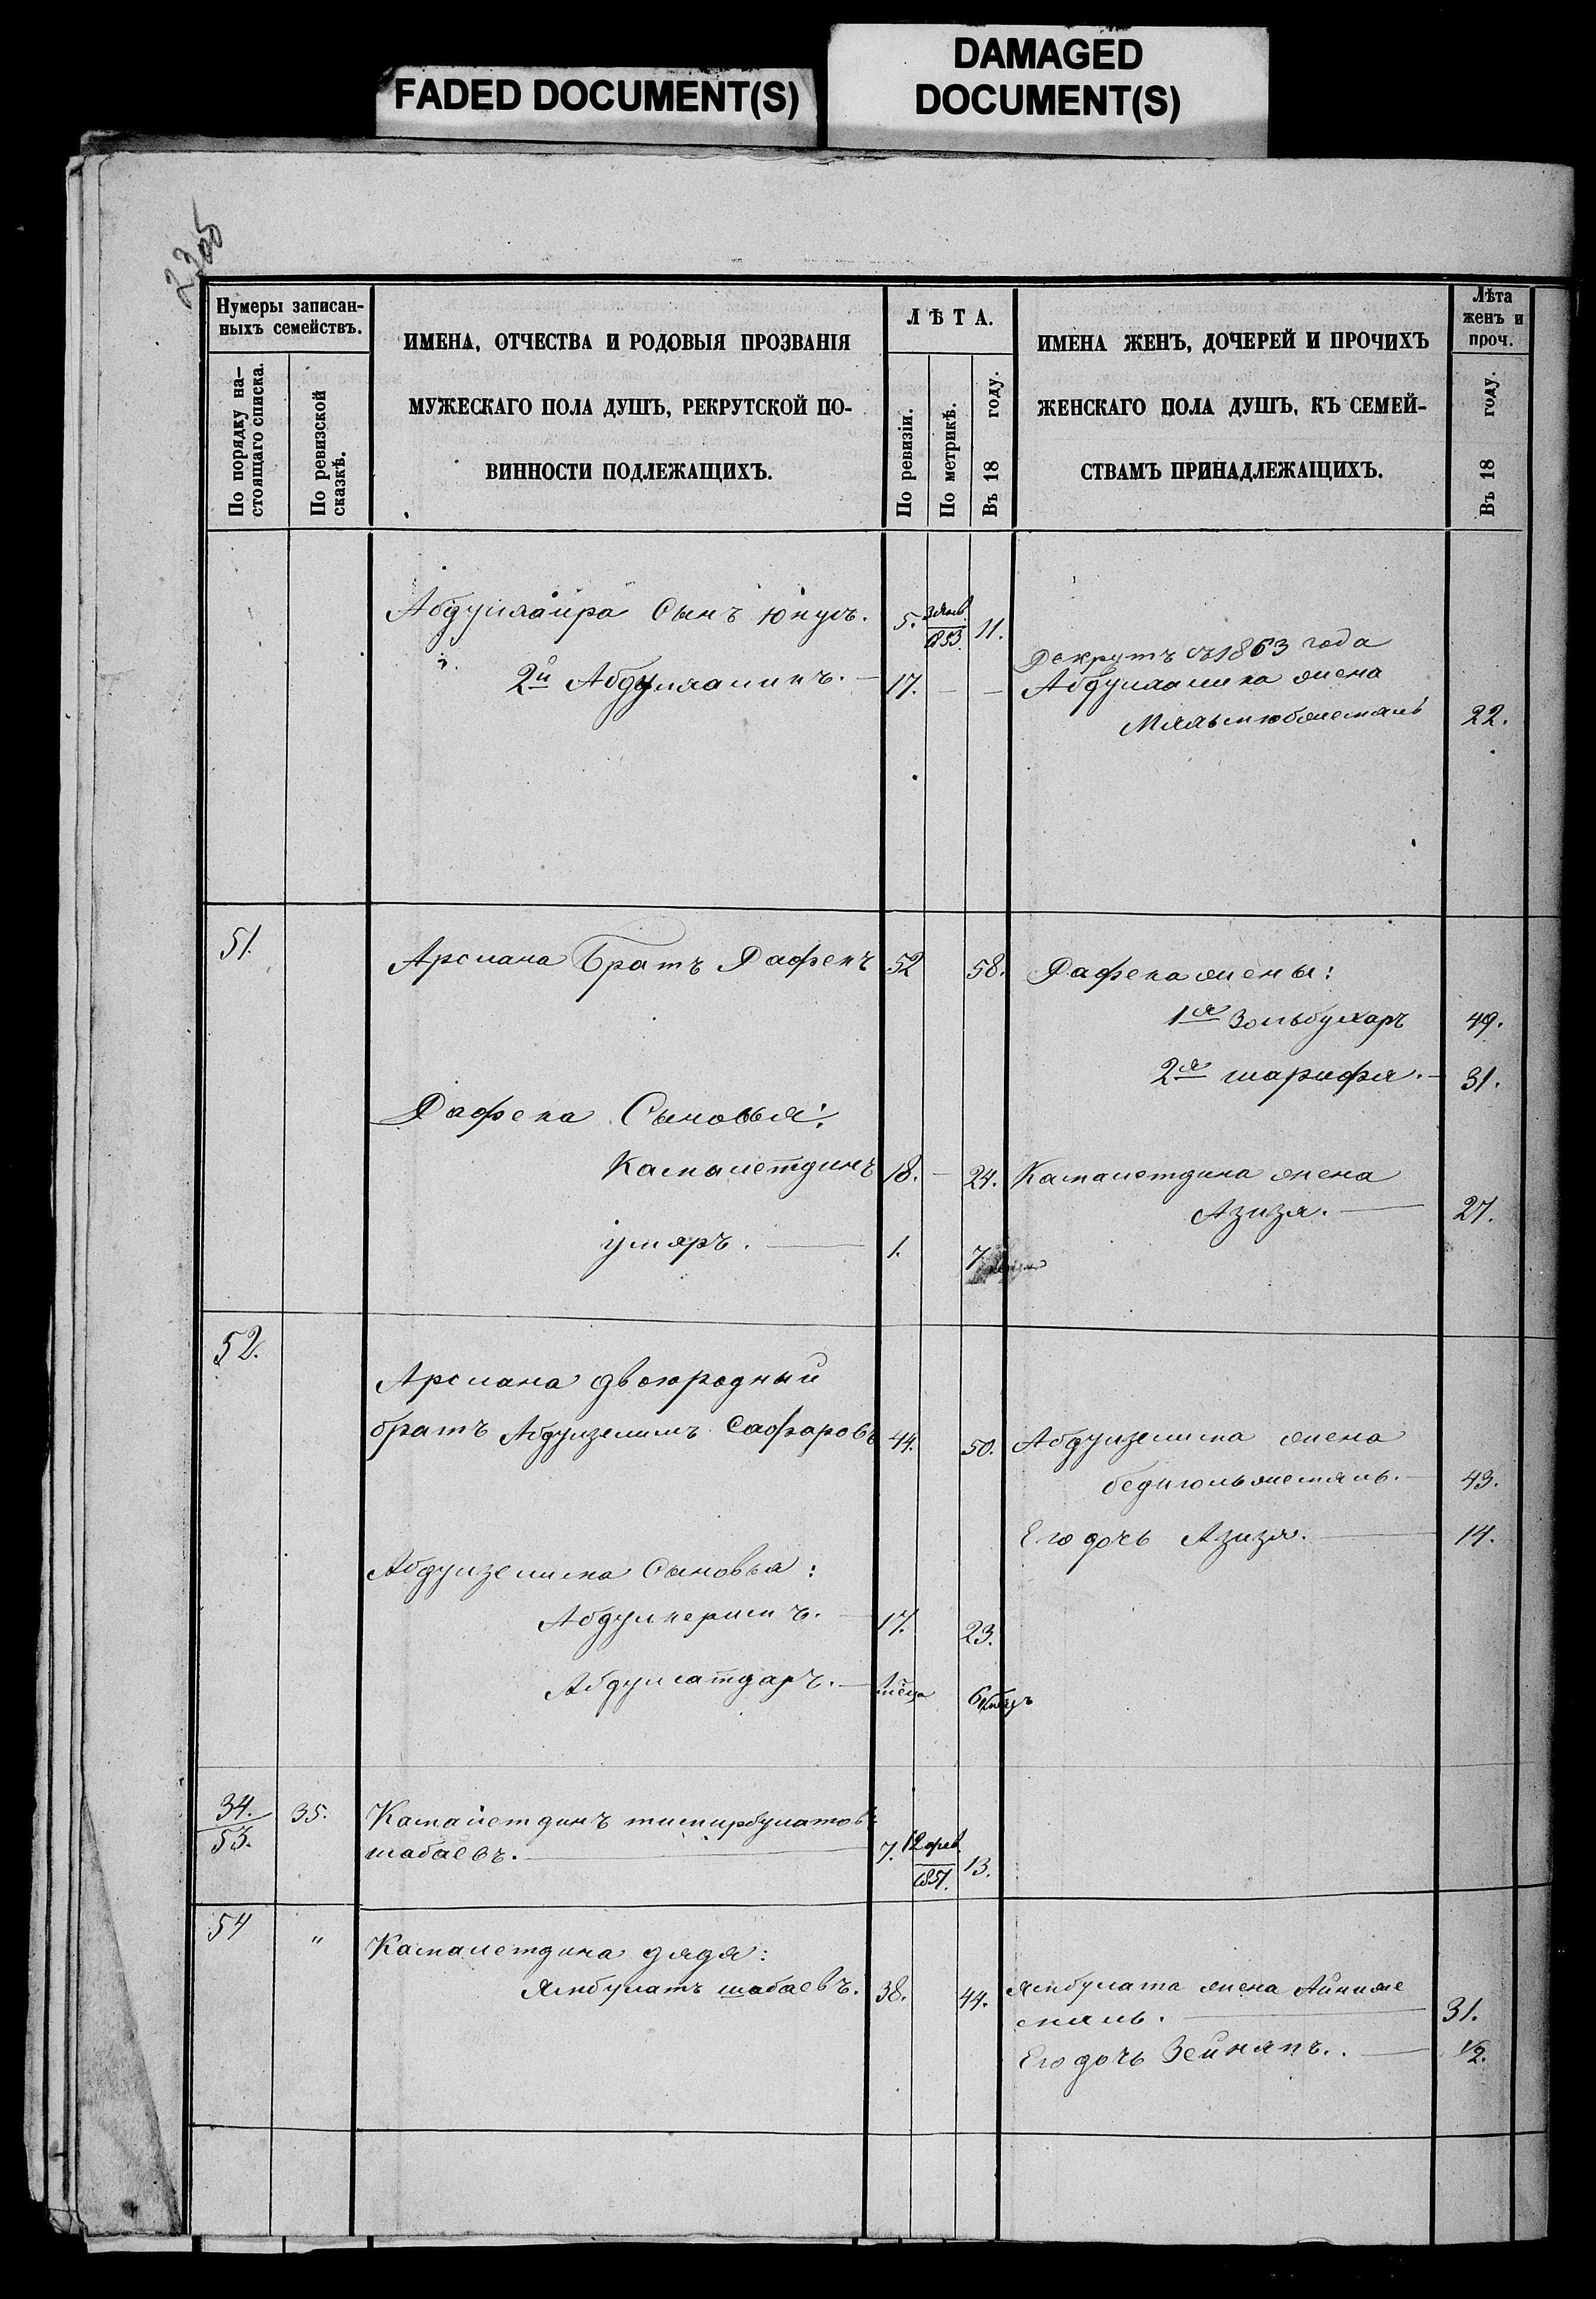 FADED DOCUMENT(S)
DAMAGED
DOCUMENT(S)
Нумеры записан-
ныхъ семействъ.
По порядку на-
стоящаго списка.
По ревизской
сказкѣ.
ИМЕНА, ОТЧЕСТВА И РОДОВЫЯ ПРОЗВАНІЯ
МУЖЕСКАГО ПОЛА ДУШЪ, РЕКРУТСКОЙ ПО-
ВИННОСТИ ПОДЛЕЖАЩИХЪ.
ЛѢТА.
По ревизіи.
По метрикѣ.
Въ 18 году.
ИМЕНА ЖЕНЪ, ДОЧЕРЕЙ И ПРОЧИХЪ
ЖЕНСКАГО ПОЛА ДУШЪ, КЪ СЕМЕЙ-
СТВАМЪ ПРИНАДЛЕЖАЩИХЪ.
Лѣта
женъ и
проч.
Въ 18 году.
Сынъ Юнусъ. 5. 1853. 11.
Рекрутъ съ 1863 года
2й Абдулламинъ. 17. Абдулламина жена
22.
51. Арслана Братъ Рафекъ 52 58. Рафека жены:
1я Зольбухаръ 49.
2я шарифя. 31.
Рафека Сыновья:
Камалетдинъ 18. 24. Камалетдина жена
Азизя. 27.
умяръ. 1. 7.
52. Арслана двоюродный
братъ Абдулзелилъ Сафаровъ 44. 50. Абдулзелила жена
43.
Его дочь Азизя. 14.
Абдулзелила Сыновья:
Абдулкеримъ. 17. 23.
Абдулсатдаръ.
34. 35. Камалетдинъ тимирбулатовъ
53. шабаевъ. 7. 12 фев. 1851. 13.
54 " Камалетдина дядя:
Ямбулатъ шабаевъ. 38. 44. Ямбулата жена
31.
Его дочь Зейняпъ. 1/2.